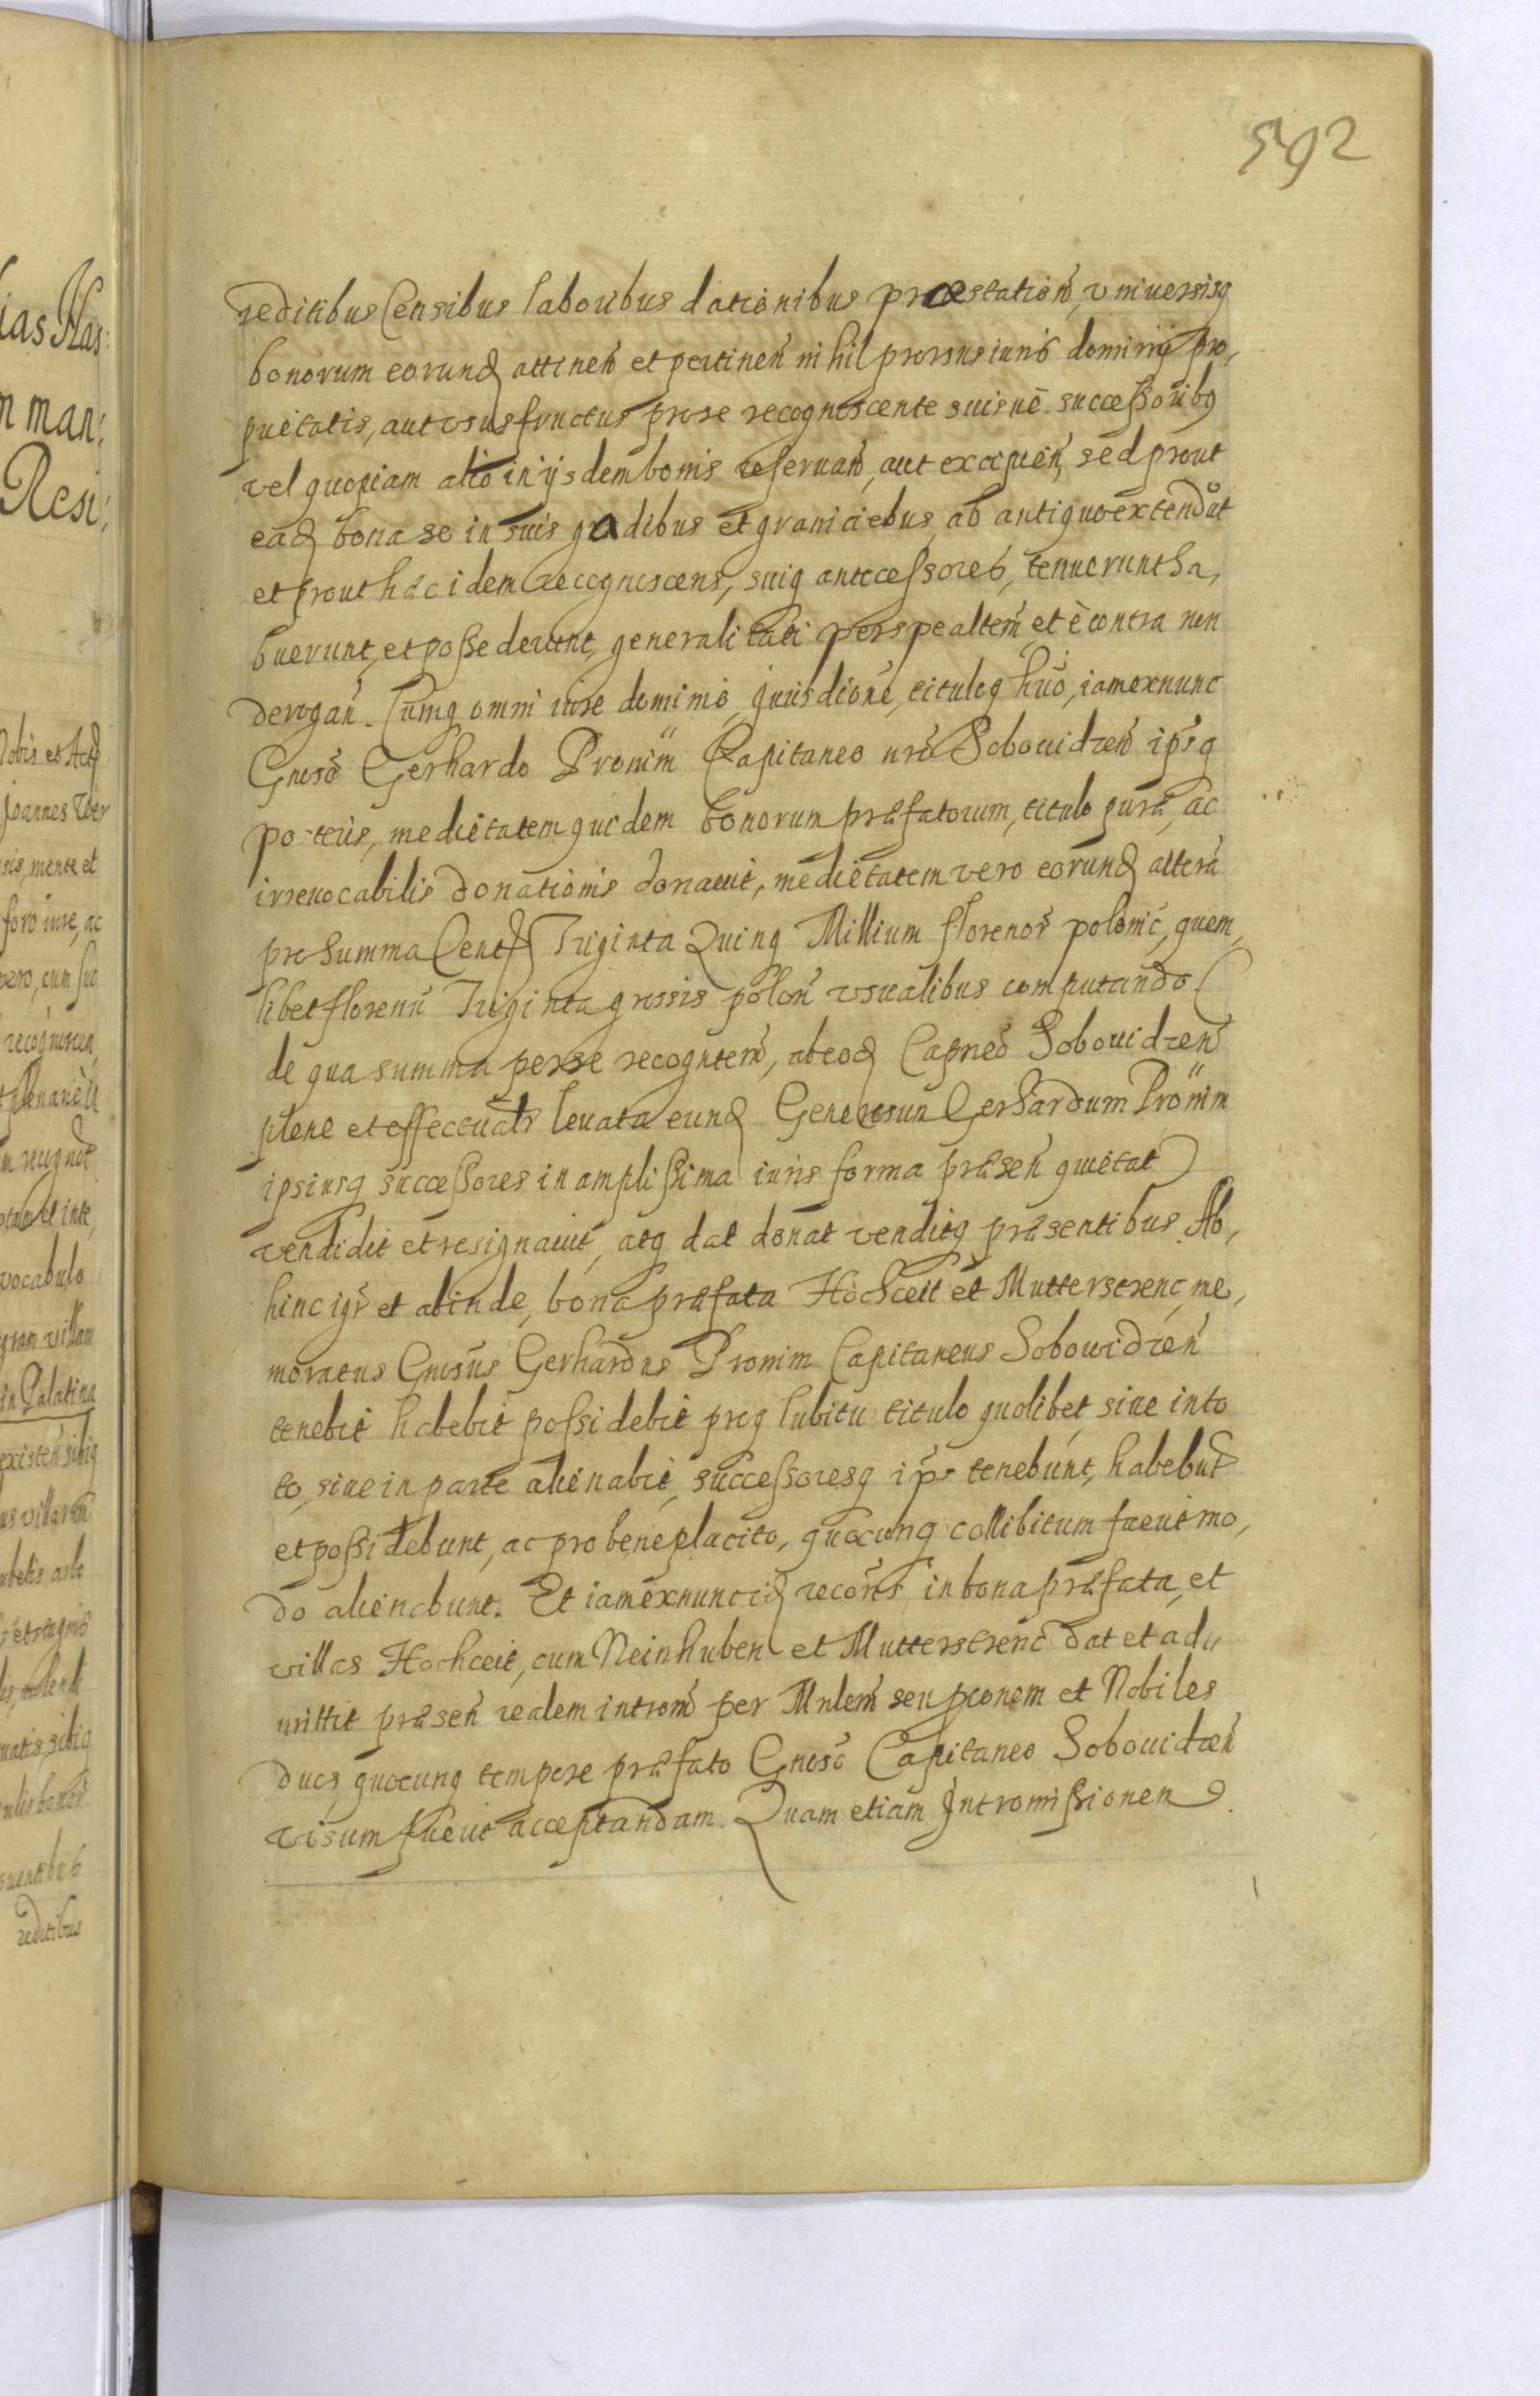 592
reditibus Censibus laboribus dationibus præstation̄, vniuersisq
bonorum eorund attinen̄ et pertinen̄ nihil prorsus iuris dominij pro,
prietatis, aut vsusfructus pro se recognoscente suisue successoribq
vel quopiam alio in ijsdem bonis reseruan̄, aut excipien̄, sed prout
ead bona se in suis gadibus et graniciebus ab antiquo extendūt
et prout hæc idem recognoscens, suiq antecessores, tenuerunt ha,
buerunt, et possederunt, generalitati per spealtem̄ et è contra non
derogan̄. Cumq omni iure dominio, Jurisdione, tituloq hūō, iam ex nunc
Gnoso Gerhardo Pronin Capitaneo nr̄o Sobouidzen̄ ipsq
posteris, medietatem quidem bonorum præfatorum, titulo puræ, ac
irreuocabilis donationis donauit, medietatem vero eorund alterā
pro Summa Cent Triginta Quinq Millium florenor̄ polonic̄, quem,
libet florenū Triginta grossis polon̄ vsualibus computando (
de qua summa per se recogntem̄, ab eod Capneo Sobouidzen̄
plene et effectualr̄ leuata eund Generosun Gerhardum Pronin
ipsiusq successores in amplissima iuris forma præsen̄ quietat)
vendidit et resignauit, atq dat donat venditq præsentibus. Ab,
hinc igr̄ et abinde, bona præfata Hochceit et Mutterstrenc, me,
moratus Gnosus Gerhardus Pronin Capitaneus Sobowidzen̄
tenebit habebit possidebit proq lubitu titulo quolibet siue in to
to, siue in parte alienabit, successoresq ips tenebunt, habebūt
et possidebunt, ac pro beneplacito, quocunq collibitum fuerit mo,
do alienabunt. Et iam ex nunc id recon̄s in bona præfata, et
villas Hochceit, cum Neinhuben et Mutterstrenc dat et ad,,
mittit præsen̄ realem introm̄ per Mnlem̄ seu pconem et Nobiles
duos quocunq tempore præfato Gnoso Capitaneo Sobouidzen̄
visum fuerit acceptandam. Quam etiam Intromissionem